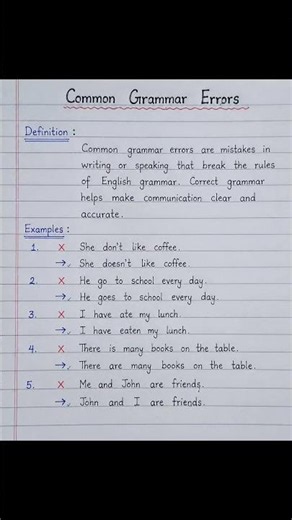 Common Grammar Errors
Definition :
Common grammar errors are mistakes in
writing or speaking that break the rules
of English grammar. Correct grammar
helps make communication clear and
accurate.
Examples :
1. ✗ She don't like coffee.
→✓ She doesn't like coffee.
2. ✗ He go to school every day.
→✓ He goes to school every day.
3. ✗ I have ate my lunch.
→✓ I have eaten my lunch.
4. ✗ There is many books on the table.
→✓ There are many books on the table.
5. ✗ Me and John are friends.
→✓ John and I are friends.